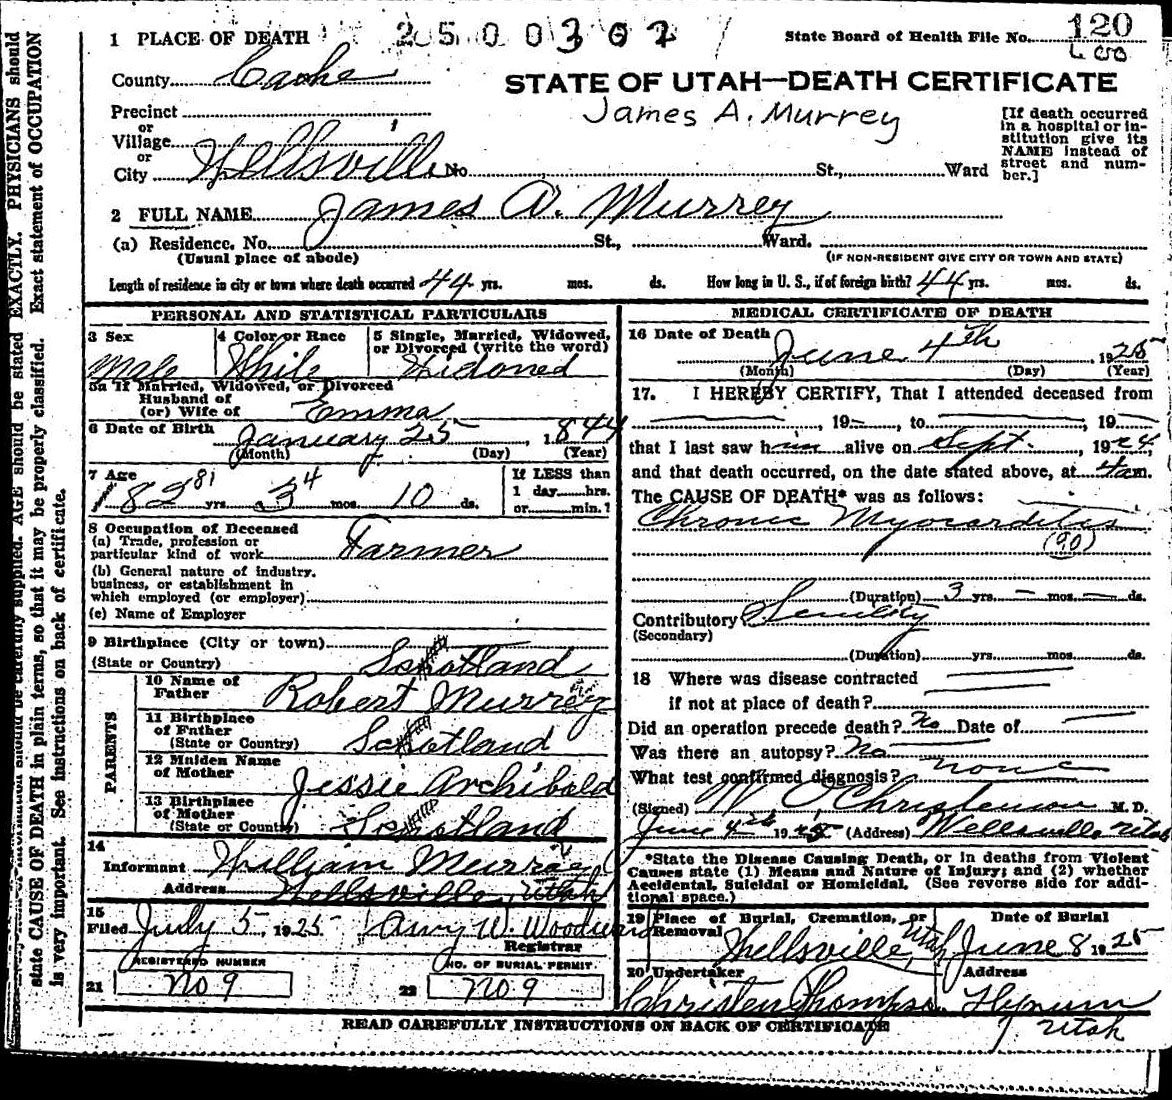 1 PLACE OF DEATH 2500302 State Board of Health File No. 120
County Cache
STATE OF UTAH—DEATH CERTIFICATE
James A. Murrey
Precinct
or
Village
or
City Wellsville No. St., Ward
[If death occurred
in a hospital or in-
stitution give its
NAME instead of
street and num-
ber.]
2 FULL NAME James A. Murrey
(a) Residence. No. St., Ward.
(Usual place of abode) (IF NON-RESIDENT GIVE CITY OR TOWN AND STATE)
Length of residence in city or town where death occurred 44 yrs. mos. ds. How long in U. S., if of foreign birth? 44 yrs. mos. ds.
PERSONAL AND STATISTICAL PARTICULARS
3 Sex 4 Color or Race 5 Single, Married, Widowed,
or Divorced (write the word)
Male White Widowed
5a If Married, Widowed, or Divorced
Husband of
(or) Wife of Emma
6 Date of Birth January 25, 1844
(Month) (Day) (Year)
7 Age 82 81 yrs. 3 4 mos. 10 ds.
If LESS than
1 day hrs.
or min.?
8 Occupation of Deceased
(a) Trade, profession or
particular kind of work Farmer
(b) General nature of industry,
business, or establishment in
which employed (or employer)
(c) Name of Employer
9 Birthplace (City or town)
(State or Country) Scotland
PARENTS
10 Name of
Father Robert Murrey
11 Birthplace
of Father
(State or Country) Scotland
12 Maiden Name
of Mother Jessie Archibald
13 Birthplace
of Mother
(State or Country) Scotland
14
Informant William Murrey
Address Wellsville, Utah
15
Filed July 5 1925 Amy W. Woodward
Registrar
REGISTERED NUMBER NO. OF BURIAL PERMIT
21 No 9 22 No 9
MEDICAL CERTIFICATE OF DEATH
16 Date of Death June 4th, 1925
(Month) (Day) (Year)
17. I HEREBY CERTIFY, That I attended deceased from
, 19 , to , 19
that I last saw him alive on Sept. , 1924,
and that death occurred, on the date stated above, at 4 am.
The CAUSE OF DEATH* was as follows:
Chronic Myocarditis
(90)
(Duration) 3 yrs. — mos. — ds.
Contributory Senility
(Secondary)
(Duration) yrs. mos. ds.
18 Where was disease contracted
if not at place of death?
Did an operation precede death? No Date of
Was there an autopsy? No
What test confirmed diagnosis? none
(Signed) W. O. Christenson M. D.
June 4th 1925 (Address) Wellsville, Utah
*State the Disease Causing Death, or in deaths from Violent
Causes state (1) Means and Nature of Injury; and (2) whether
Accidental, Suicidal or Homicidal. (See reverse side for addi-
tional space.)
19 Place of Burial, Cremation, or
Removal Date of Burial
Wellsville, Utah June 8 1925
20 Undertaker Address
Christen Thompson Hyrum
Utah
READ CAREFULLY INSTRUCTIONS ON BACK OF CERTIFICATE
should be carefully supplied. AGE should be stated EXACTLY. PHYSICIANS should
state CAUSE OF DEATH in plain terms, so that it may be properly classified. Exact statement of OCCUPATION
is very important. See instructions on back of certificate.